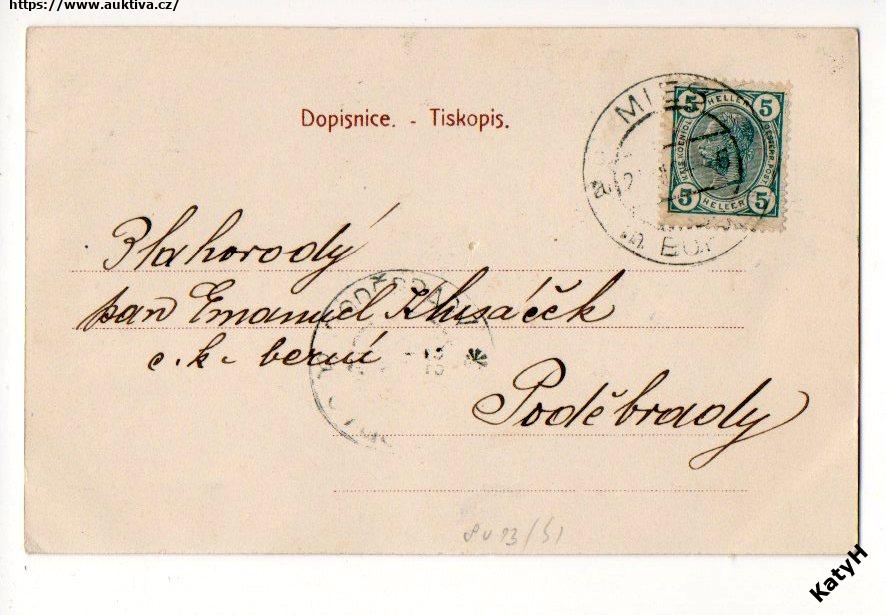 https://www.auktiva.cz/
Dopisnice. - Tiskopis.
MIES
5 HELLER 5
5 HELLER 5
Blahorodý
pan Emanuel Klusáček
c. k. berní
PODĚBRADY
Poděbrady
KatyH